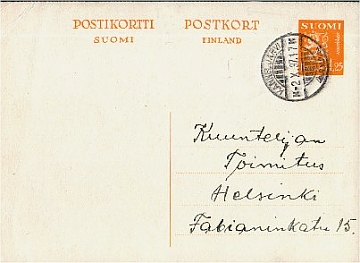 POSTIKORTTI POSTKORT
SUOMI FINLAND
SUOMI
1,25
2.X.37.17
Kuuntelijan
Toimitus
Helsinki
Fabianinkatu 15.